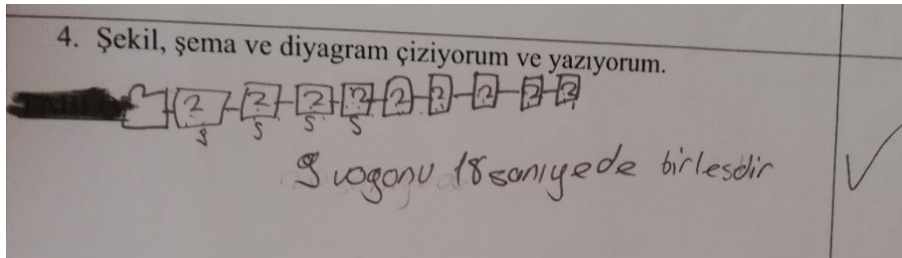 4. Şekil, şema ve diyagram çiziyorum ve yazıyorum.
2 2 2 2 2 2 2 2 2
s s s s
9 vagonu 18 saniyede birlesdir